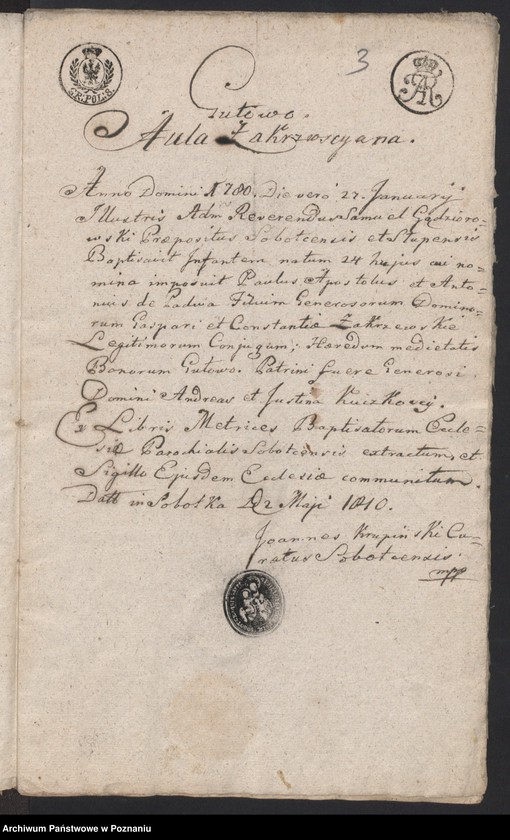 SR. POL. 8.
3
Gutowo.
Aula Zakrzewscyana.
Anno Domini 1780. Die vero 27. Januarij
Illustris Adm Reverendus Samuel Gądzioro=
wski Præpositus Sobotcensis et Slupensis
Baptisavit Infantem natum 24 hujus cui no=
mina imposuit Paulus Apostolus et Anto=
nius de Padua Filium Generosorum Domino=
rum Gaspari et Constantiæ Zakrzewskie
Legitimorum Conjugum; Hæredum medietatis
Bonorum Gutowo. Patrini fuere Generosi
Domini Andreas et Justina Kuczkovij.
Ex Libris Metrices Baptisatorum Eccle=
siæ Parochialis Sobotcensis extractum, et
Sigillo Ejusdem Ecclesiæ communitum.
Datt in Sobotka D 2 Maji 1810.
Joannes Krupiński Cu=
ratus Sobotcensis.
mpp
Archiwum Państwowe w Poznaniu